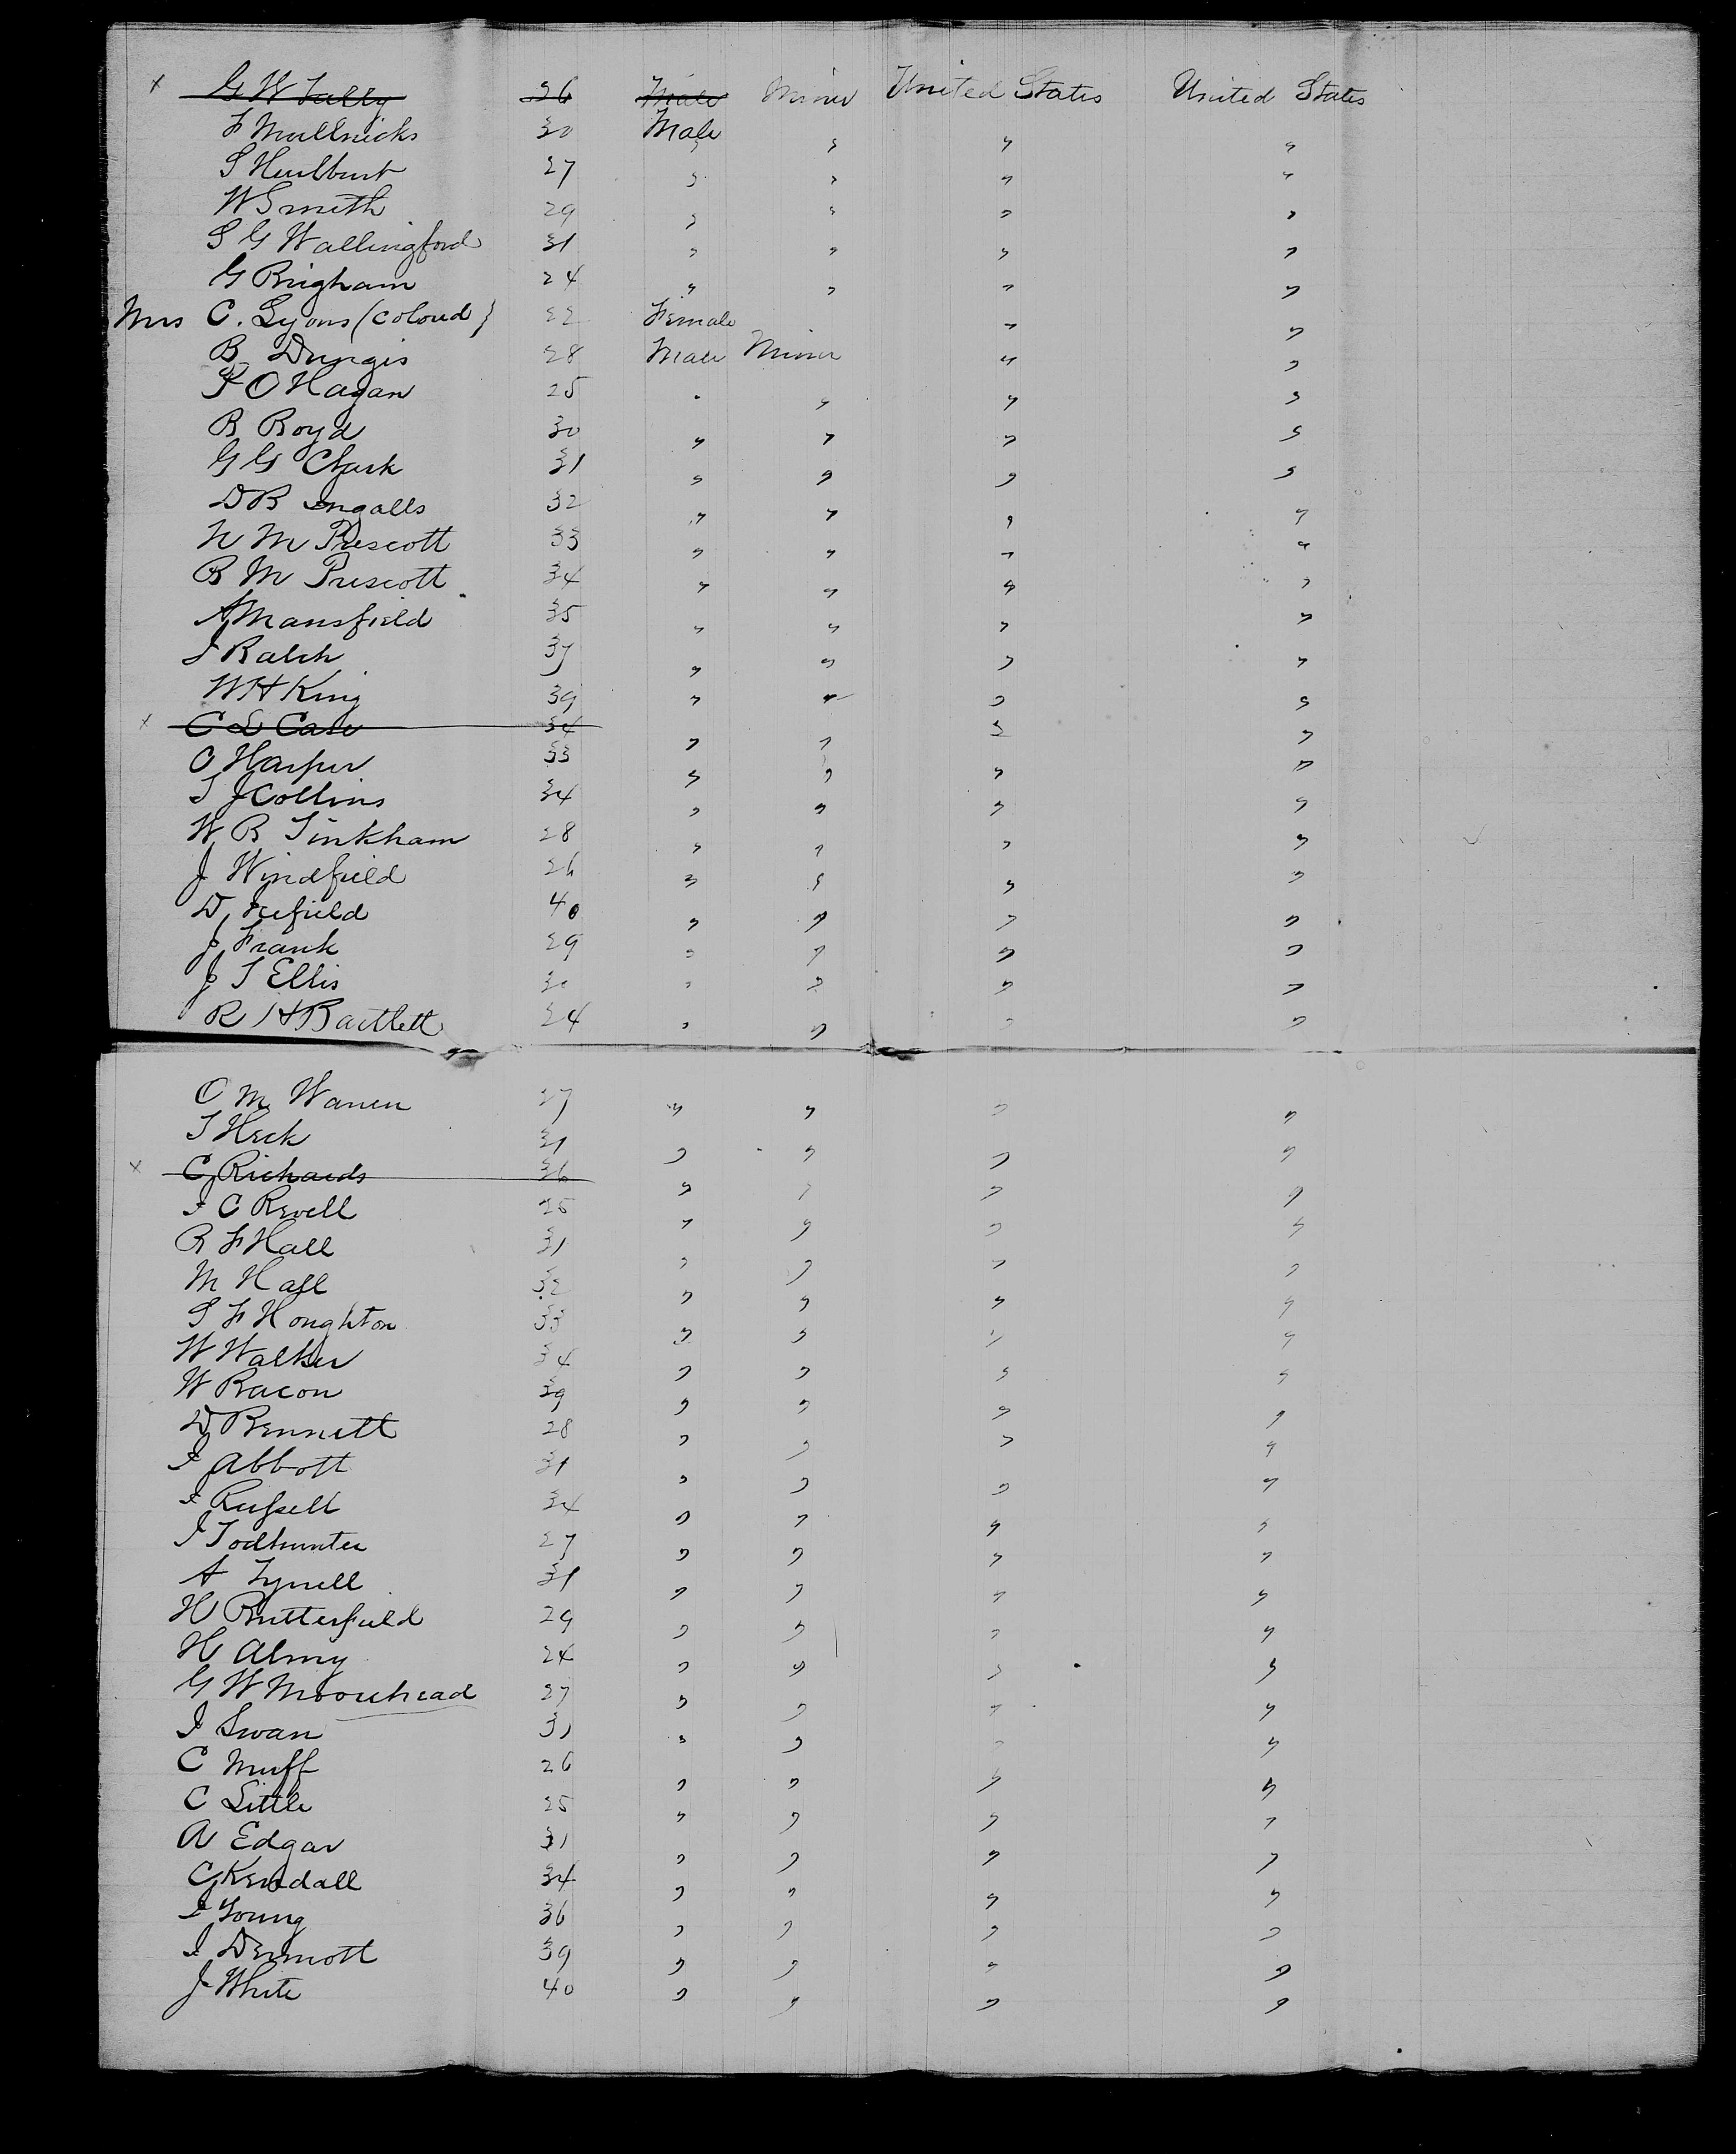 x G W Tally 26 Male Miner United States United States
F Mullnicks 30 Male " " "
S Hurlburt 27 " " " "
W Smith 29 " " " "
S G Wallingford 31 " " " "
G Brigham 24 " " " "
Mrs C. Lyons (colored) 22 Female " "
B Dungis 28 Male Miner " "
P O Hagan 25 " " " "
B Boyd 30 " " " "
G G Clark 31 " " " "
D B Ingalls 32 " " " "
N M Prescott 33 " " " "
B M Prescott 34 " " " "
A Mansfield 35 " " " "
J Balch 37 " " " "
W H King 39 " " " "
x C L Case 34 " " " "
C Harper 33 " " " "
T J Collins 34 " " " "
W B Tinkham 28 " " " "
J Windfield 26 " " " "
D 40 " " " "
J Frank 29 " " " "
J T Ellis 30 " " " "
R H Bartlett 24 " " " "
C M Warren 27 " " " "
T Heck 31 " " " "
x C Richards 36 " " " "
J C Revell 25 " " " "
R F Hall 31 " " " "
M Hall 32 " " " "
S F Houghton 33 " " " "
W Walker 34 " " " "
W Bacon 39 " " " "
D Bennett 28 " " " "
J Abbott 31 " " " "
J Russell 34 " " " "
J Todhunter 27 " " " "
A Tyrrell 31 " " " "
H Butterfield 29 " " " "
H Almy 24 " " " "
G W Moorehead 27 " " " "
J Swan 31 " " " "
C Muff 26 " " " "
C Little 25 " " " "
A Edgar 31 " " " "
C Kendall 34 " " " "
J Young 36 " " " "
J Dermott 39 " " " "
J White 40 " " " "